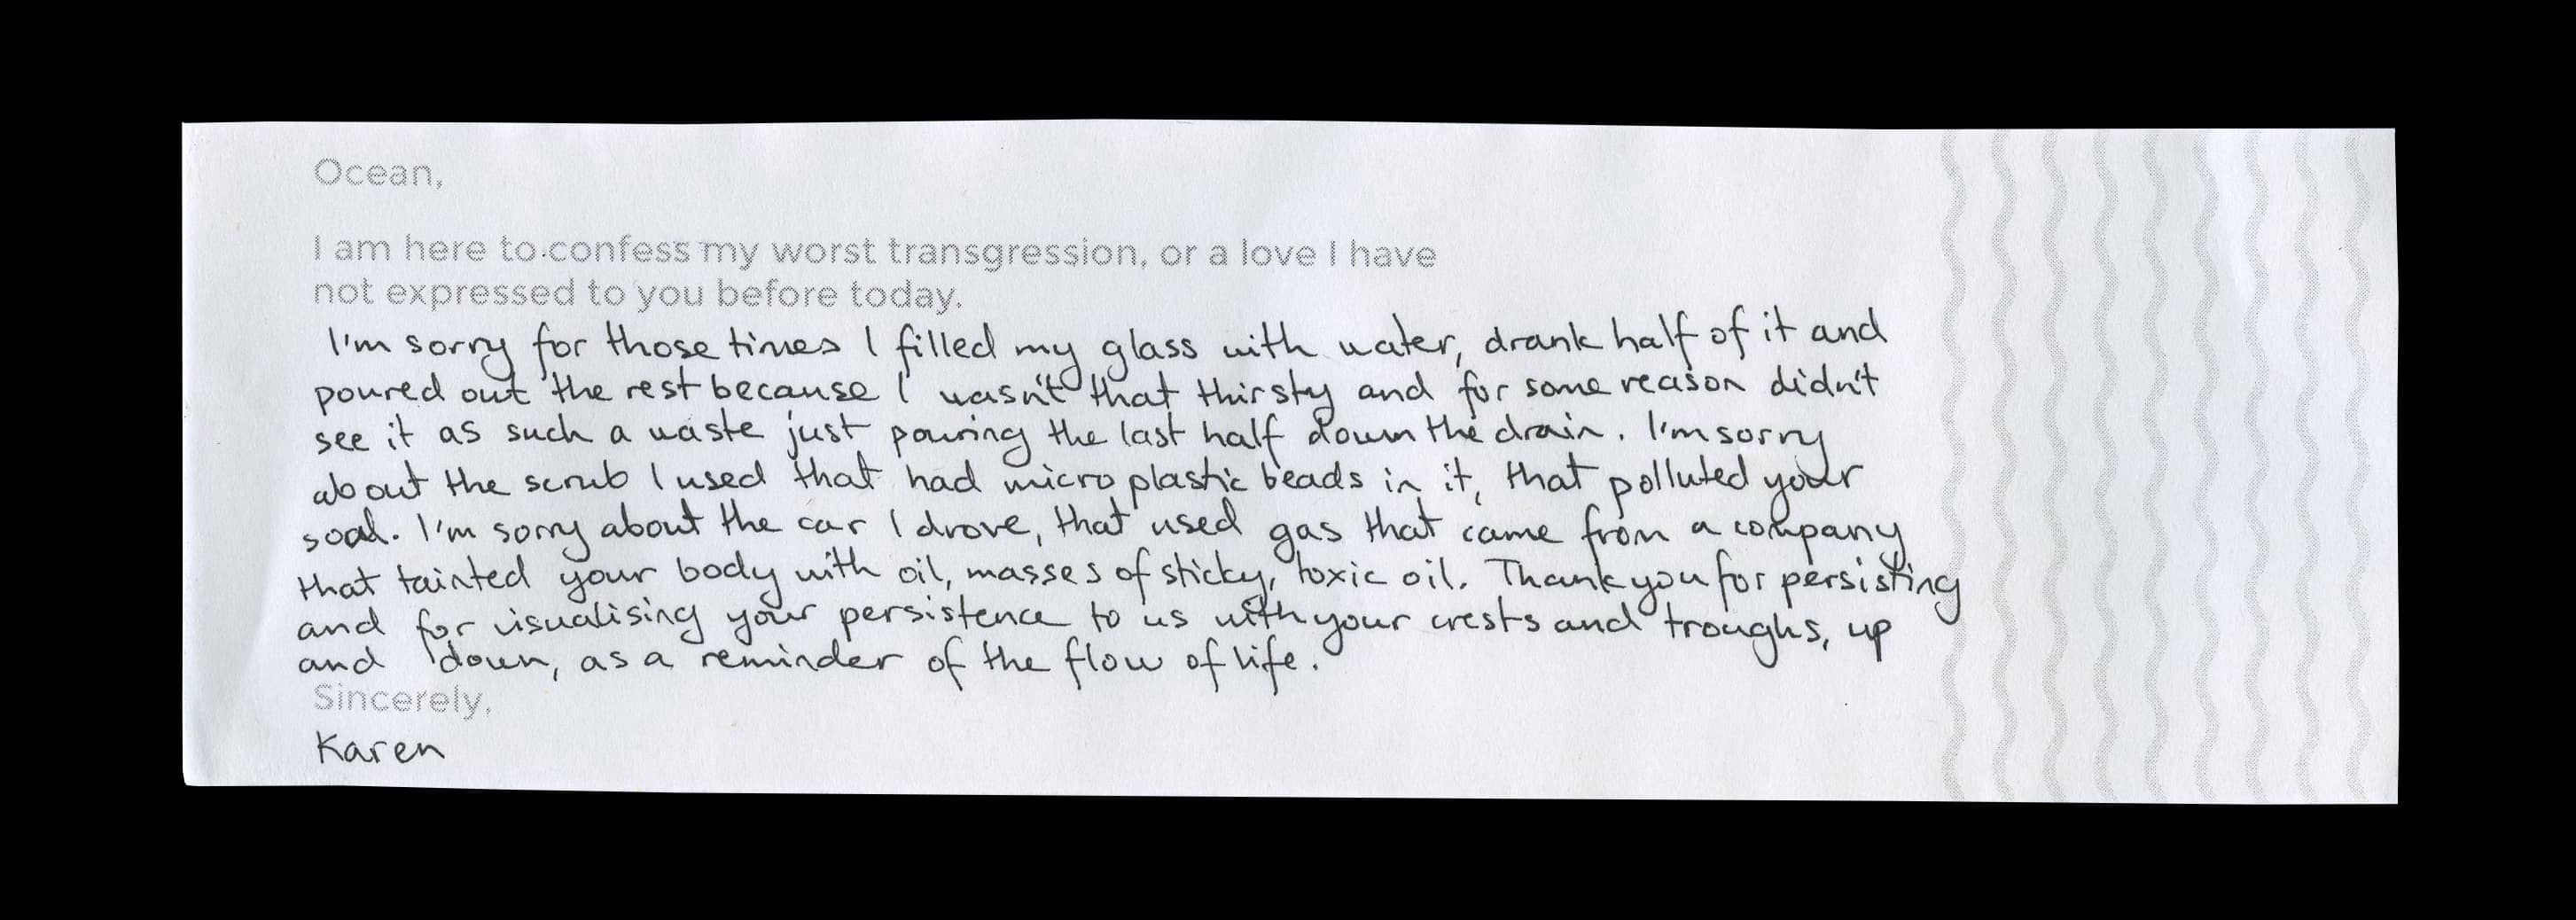 Ocean,
I am here to confess my worst transgression, or a love I have
not expressed to you before today.
I'm sorry for those times I filled my glass with water, drank half of it and
poured out the rest because I wasn't that thirsty and for some reason didn't
see it as such a waste just pouring the last half down the drain. I'm sorry
about the scrub I used that had micro plastic beads in it, that polluted your
soul. I'm sorry about the car I drove, that used gas that came from a company
that tainted your body with oil, masses of sticky, toxic oil. Thank you for persisting
and for visualising your persistence to us with your crests and troughs, up
and down, as a reminder of the flow of life.
Sincerely,
Karen